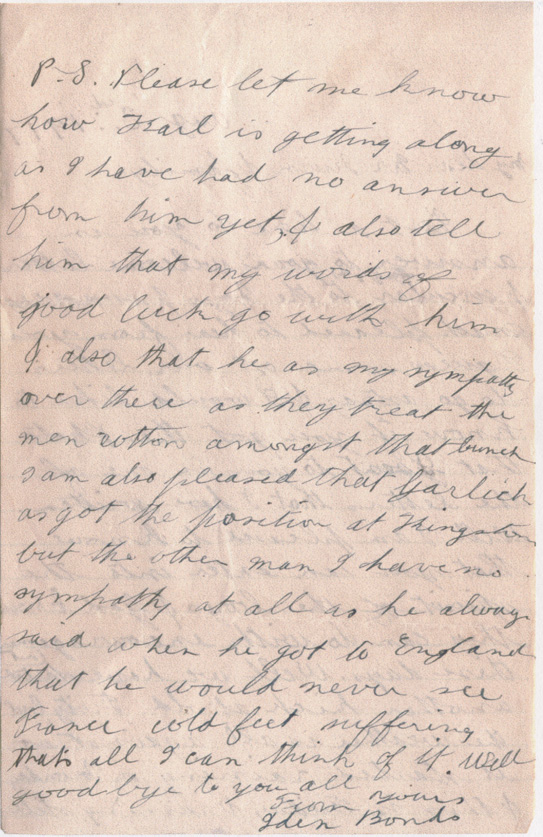 P.S. Please let me know
how Karl is getting along
as I have had no answer
from him yet, & also tell
him that my words of
good luck go with him
& also that he as my sympathy
over there as they treat the
men rotton amongst that bunch
I am also pleased that Garlick
as got the position at Kingston
but the other man I have no
sympathy at all as he always
said when he got to England
that he would never see
France cold feet suffering
thats all I can think of it. Well
good bye to you all
From yours
Iden Bonds